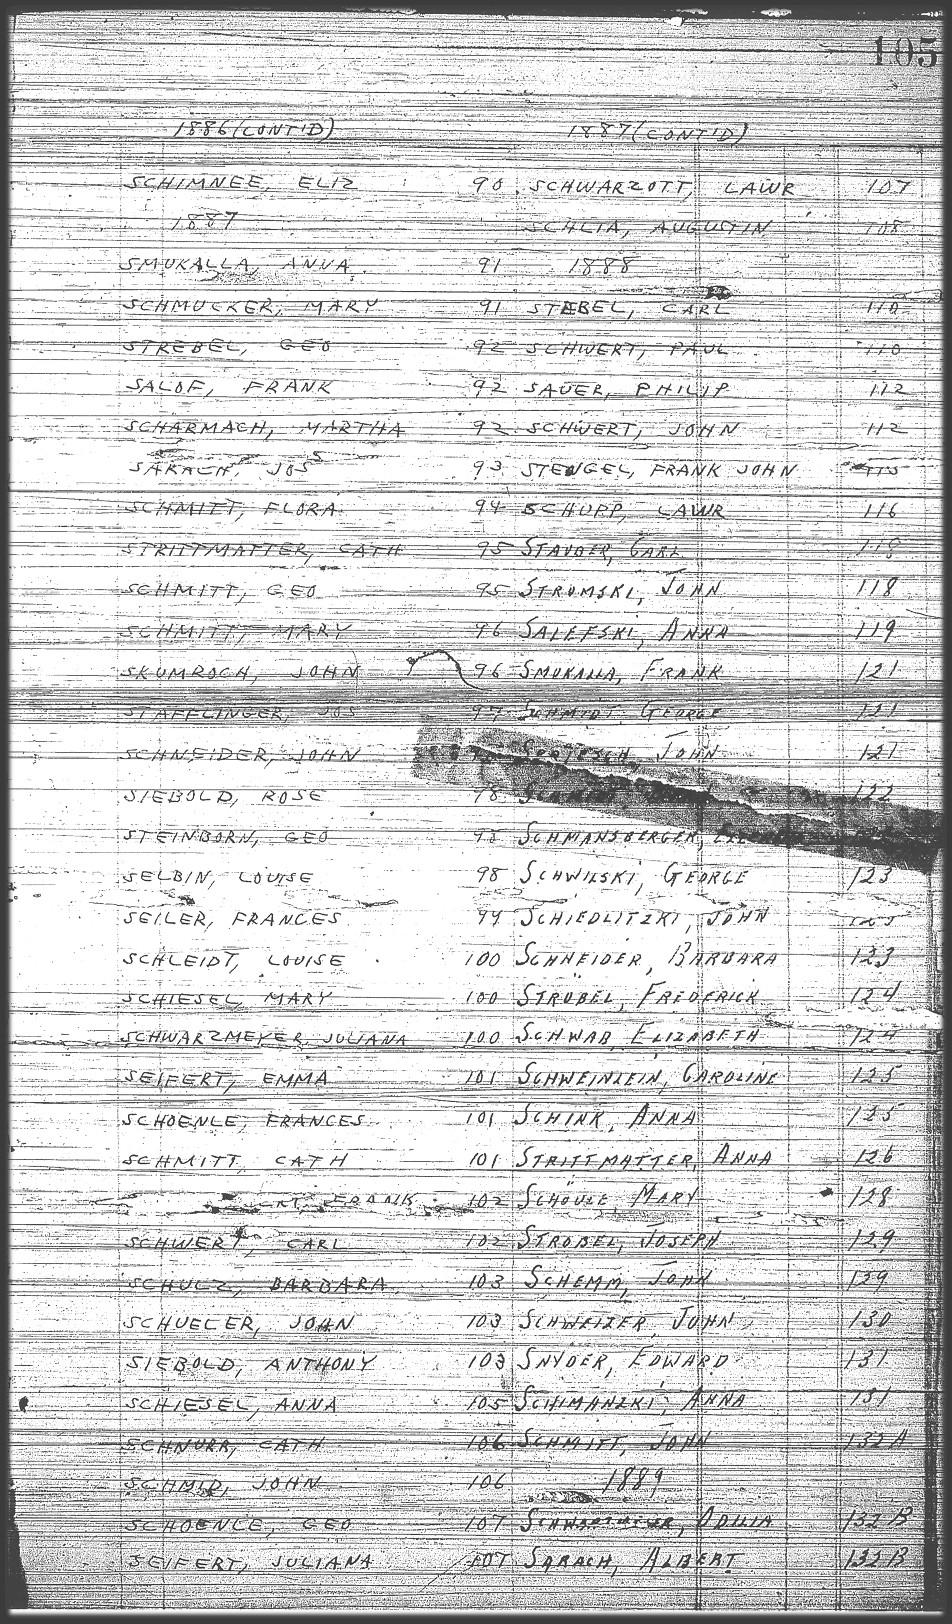 105
1886 (CONT'D)
SCHIMNEE, ELIZ 90
1887
SMUKALLA, ANNA 91
SCHMUCKER, MARY 91
STREBEL, GEO 92
SALOF, FRANK 92
SCHARMACH, MARTHA 92
SARACH, JOS 93
SCHMITT, FLORA 94
STRITTMATTER, CATH 95
SCHMITT, GEO 95
SCHMITT, MARY 96
SKUMROCH, JOHN 96
STAFFLINGER, JOS 97
SCHNEIDER, JOHN
SIEBOLD, ROSE 98
STEINBORN, GEO 98
SELBIN, LOUISE 98
SEILER, FRANCES 99
SCHLEIDT, LOUISE 100
SCHIESEL, MARY 100
SCHWARZMEYER, JULIANA 100
SEIFERT, EMMA 101
SCHOENLE, FRANCES 101
SCHMITT, CATH 101
FRANK 102
SCHWERT, CARL 102
SCHULZ, BARBARA 103
SCHUELER, JOHN 103
SIEBOLD, ANTHONY 103
SCHIESEL, ANNA 105
SCHNURR, CATH 106
SCHMID, JOHN 106
SCHOENLE, GEO 107
SEIFERT, JULIANA 107
1887 (CONT'D)
SCHWARZOTT, LAWR 107
SCHLIA, AUGUSTIN 108
1888
STEBEL, CARL 110
SCHWERT, PAUL 110
SAUER, PHILIP 112
SCHWERT, JOHN 112
STENGEL, FRANK JOHN 115
SCHUPP, LAWR 116
STAUDER, CARL 118
STROMSKI, JOHN 118
SALEFSKI, ANNA 119
SMUKALLA, FRANK 121
SCHMIDT, GEORGE 121
JOHN 121
122
SCHMANSBERGER,
SCHWILSKI, GEORGE 123
SCHIEDLITZKI, JOHN 123
SCHNEIDER, BARBARA 123
STROBEL, FREDERICK 124
SCHWAB, ELIZABETH 124
SCHWEINLEIN, CAROLINE 125
SCHINK, ANNA 125
STRITTMATTER, ANNA 126
SCHOULE, MARY 128
STROBEL, JOSEPH 129
SCHEMM, JOHN 129
SCHWEIZER, JOHN 130
SNYDER, EDWARD 131
SCHIMANZKI, ANNA 131
SCHMITT, JOHN 132A
1889
132B
SARACH, ALBERT 132B